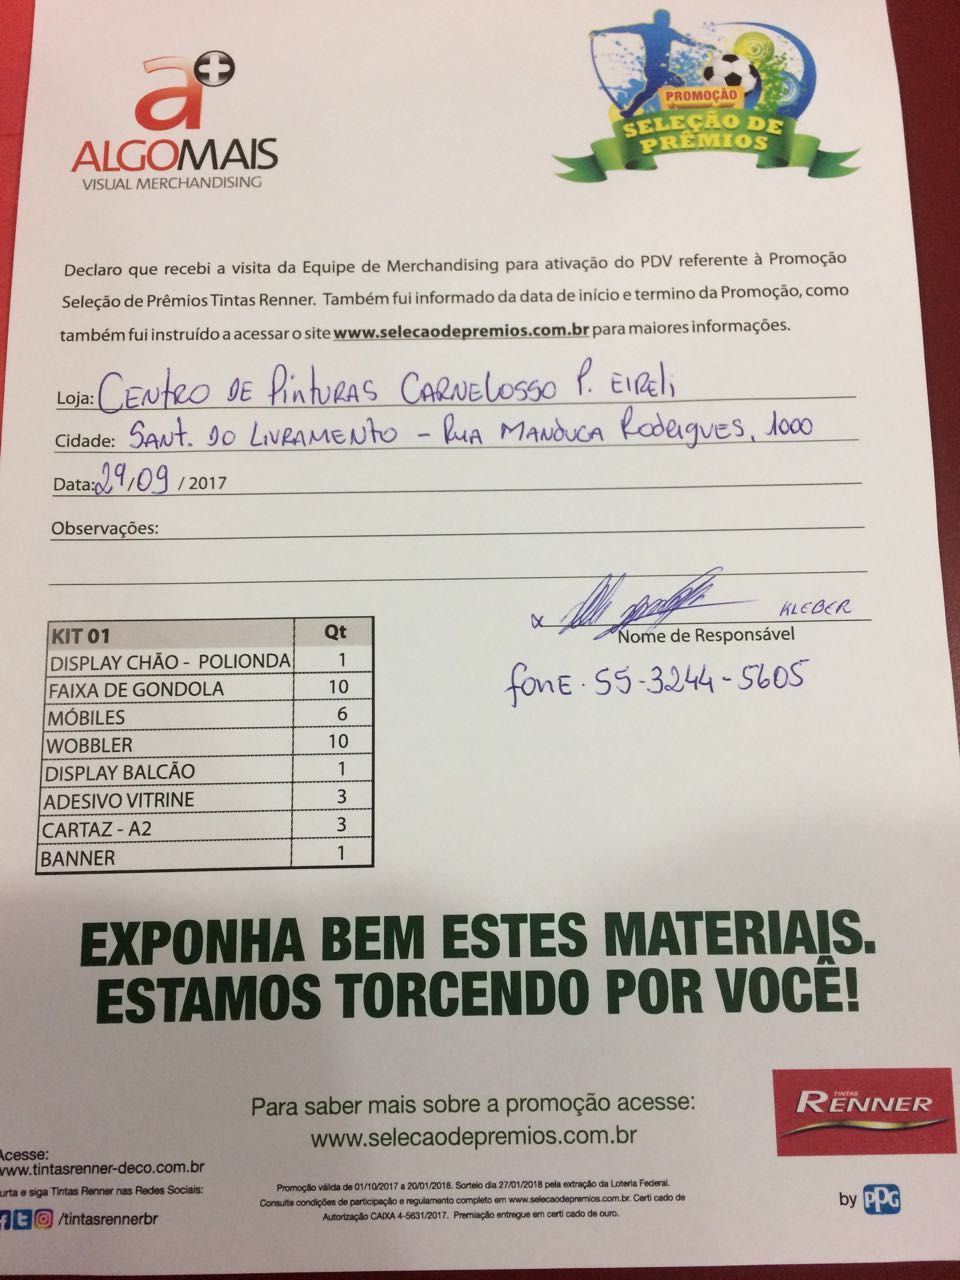 a+
ALGOMAIS
VISUAL MERCHANDISING
PROMOÇÃO
SELEÇÃO DE
PRÊMIOS
Declaro que recebi a visita da Equipe de Merchandising para ativação do PDV referente à Promoção
Seleção de Prêmios Tintas Renner. Também fui informado da data de início e termino da Promoção, como
também fui instruído a acessar o site www.selecaodepremios.com.br para maiores informações.
Loja: CENTRO DE PINTURAS CARNELOSSO P. EIRELI
Cidade: SANT. DO LIVRAMENTO - RUA MANDUCA RODRIGUES, 1000
Data: 29/09 / 2017
Observações:
x KLEBER
Nome de Responsável
fone. 55-3244-5605
KIT 01 Qt
DISPLAY CHÃO - POLIONDA 1
FAIXA DE GONDOLA 10
MÓBILES 6
WOBBLER 10
DISPLAY BALCÃO 1
ADESIVO VITRINE 3
CARTAZ - A2 3
BANNER 1
EXPONHA BEM ESTES MATERIAIS.
ESTAMOS TORCENDO POR VOCÊ!
Para saber mais sobre a promoção acesse:
www.selecaodepremios.com.br
TINTAS
RENNER
Acesse:
www.tintasrenner-deco.com.br
urta e siga Tintas Renner nas Redes Sociais:
/tintasrennerbr
Promoção válida de 01/10/2017 a 20/01/2018. Sorteio dia 27/01/2018 pela extração da Loteria Federal.
Consulte condições de participação e regulamento completo em www.selecaodepremios.com.br. Certi cado de
Autorização CAIXA 4-5631/2017. Premiação entregue em certi cado de ouro.
by PPG